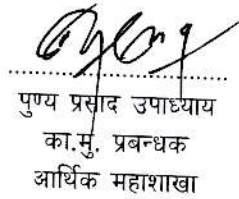 पुण्य प्रसाद उपाध्याय
का.मु. प्रबन्धक
आर्थिक महाशाखा